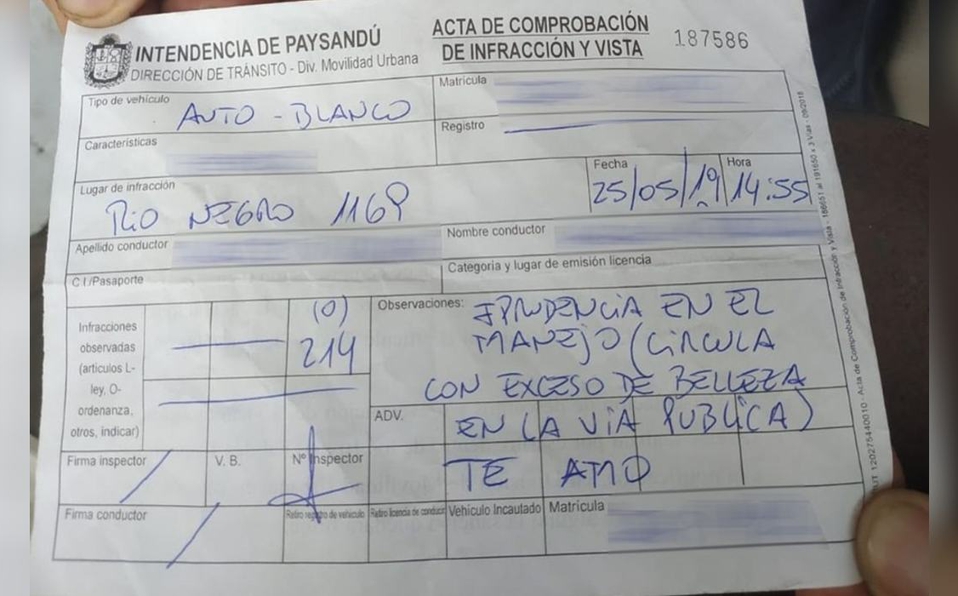 INTENDENCIA DE PAYSANDÚ
DIRECCIÓN DE TRÁNSITO - Div. Movilidad Urbana
ACTA DE COMPROBACIÓN
DE INFRACCIÓN Y VISTA
187586
Tipo de vehículo
AUTO - BLANCO
Matrícula
Características
Registro
Lugar de infracción
RIO NEGRO 1169
Fecha
25/05/19
Hora
14:55
Apellido conductor
Nombre conductor
C.I./Pasaporte
Categoria y lugar de emisión licencia
Infracciones
observadas
(articulos L-
ley, O-
ordenanza,
otros, indicar)
(O)
214
Observaciones:
IPRUDENCIA EN EL
MANEJO (CIRCULA
CON EXCESO DE BELLEZA
ADV.
EN LA VIA PUBLICA)
TE AMO
Firma inspector
V. B.
Nº Inspector
Firma conductor
Retiro registro de vehículo
Retiro licencia de conducir
Vehículo Incautado
Matrícula